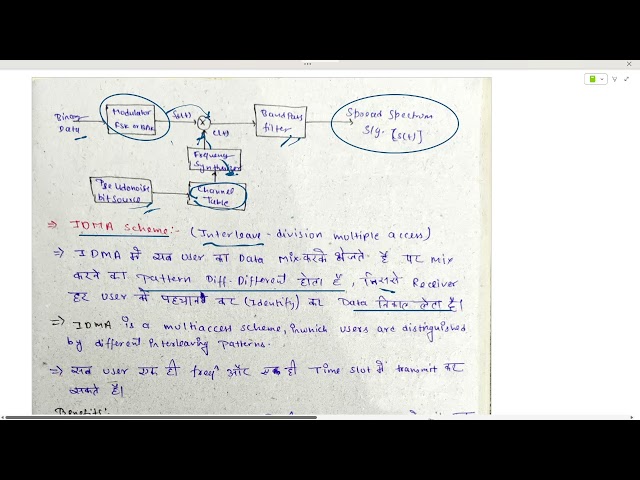 Binary Data
Modulator FSK or BPSK
Sd(t)
c(t)
Band Pass filter
Spread Spectrum Sig. [s(t)]
Frequency Synthesizer
Pseudonoise bit source
Channel Table
⇒ IDMA Scheme:- (Interleave-division multiple access)
⇒ IDMA में सब user का Data Mix करके भेजते हैं पर mix
करने का Pattern Diff-Different होता है, जिससे Receiver
हर user को पहचान कर (Identify) कर Data निकाल लेता है।
⇒ IDMA is a multiaccess scheme, in which users are distinguished
by different interleaving Patterns.
⇒ सब user एक ही freqⁿ और एक ही Time slot में transmit कर
सकते है।
Benefits: